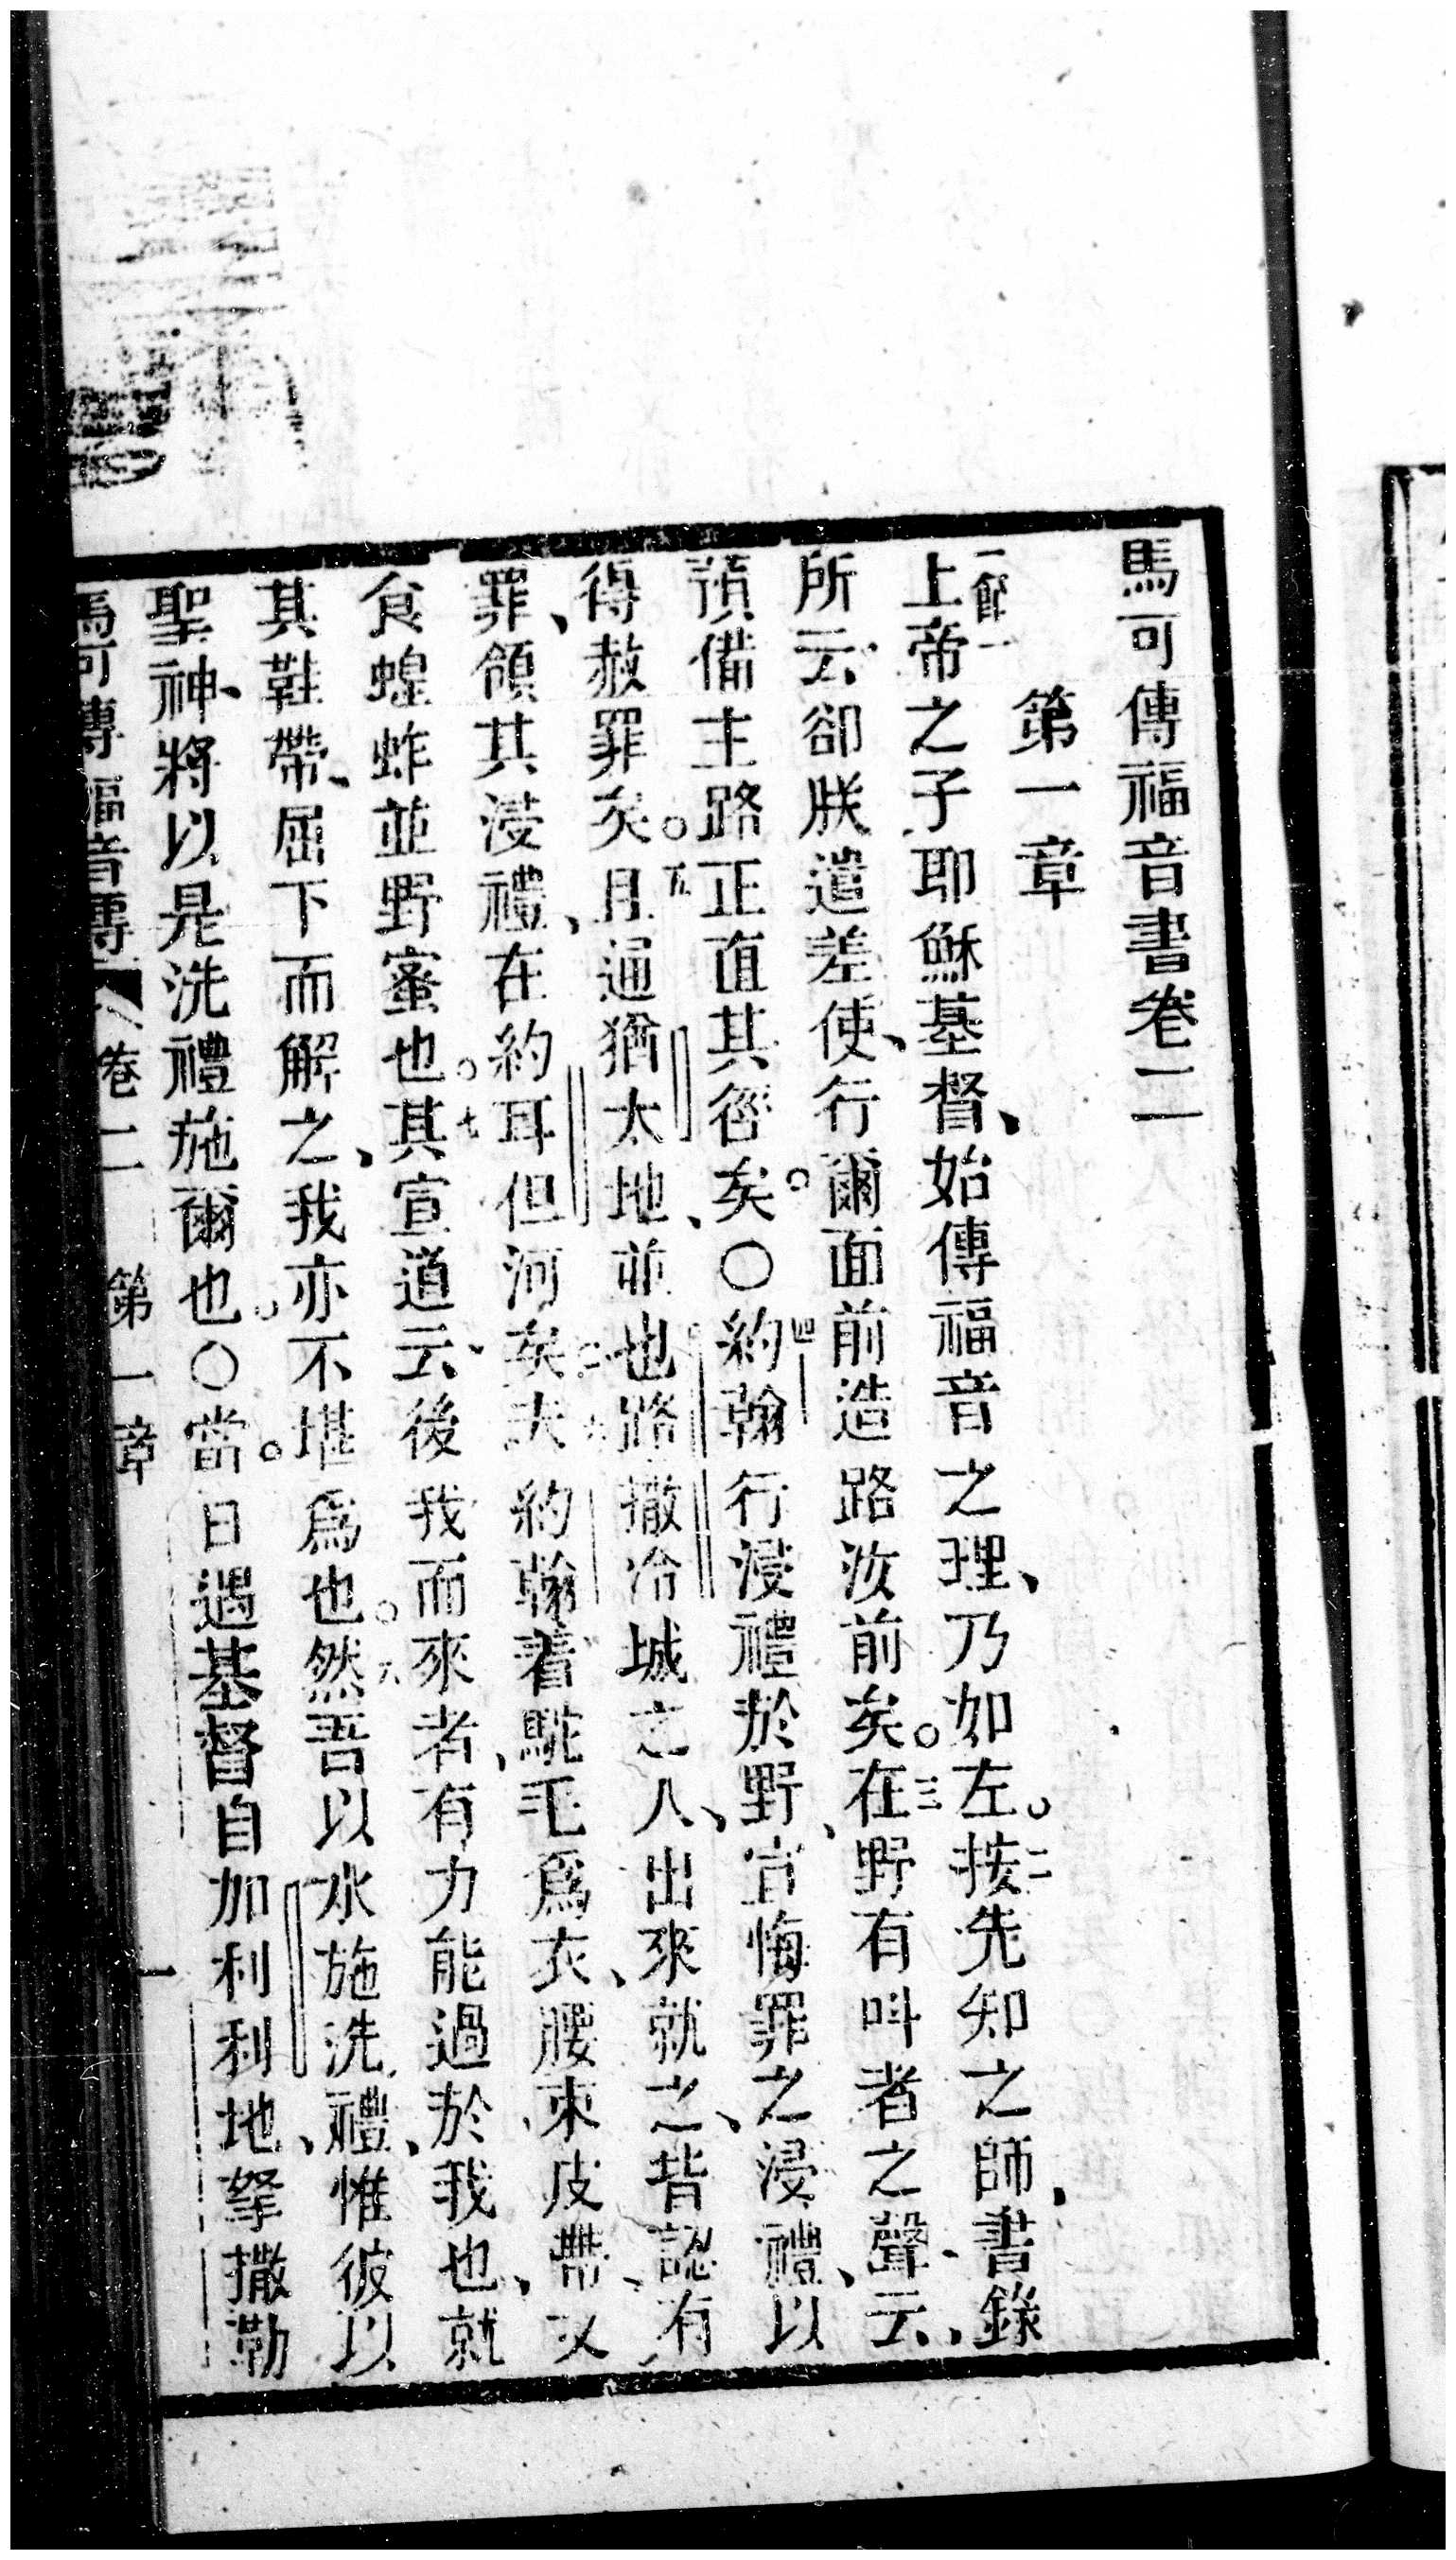 馬可傳福音書卷二
第一章
一節
上帝之子耶穌基督、始傳福音之理、乃如左。二按先知之師、書錄
所云、卻朕遣差使、行爾面前造路汝前矣。三在野有呌者之聲云、
預備主路正直其徑矣。〇四約翰行浸禮於野、宣悔罪之浸禮、以
得赦罪矣。五且通猶太地、並也路撒冷城之人、出來就之、皆認有
罪、領其浸禮、在約耳但河矣。六夫約翰着駝毛爲衣、腰束皮帶、又
食蝗蚱並野蜜也。七其宣道云、後我而來者、有力能過於我也、就
其鞋帶、屈下而解之、我亦不堪爲也。八然吾以水施洗禮、惟彼以
聖神、將以是洗禮施爾也。〇當日遇基督自加利利地、拏撒勒
馬可傳福音傳 卷二 第一章 一